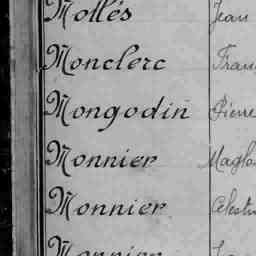 Mollés Jean
Monclerc Fran
Mongodin Pierre
Monnier Maglo
Monnier Célest
Monnier